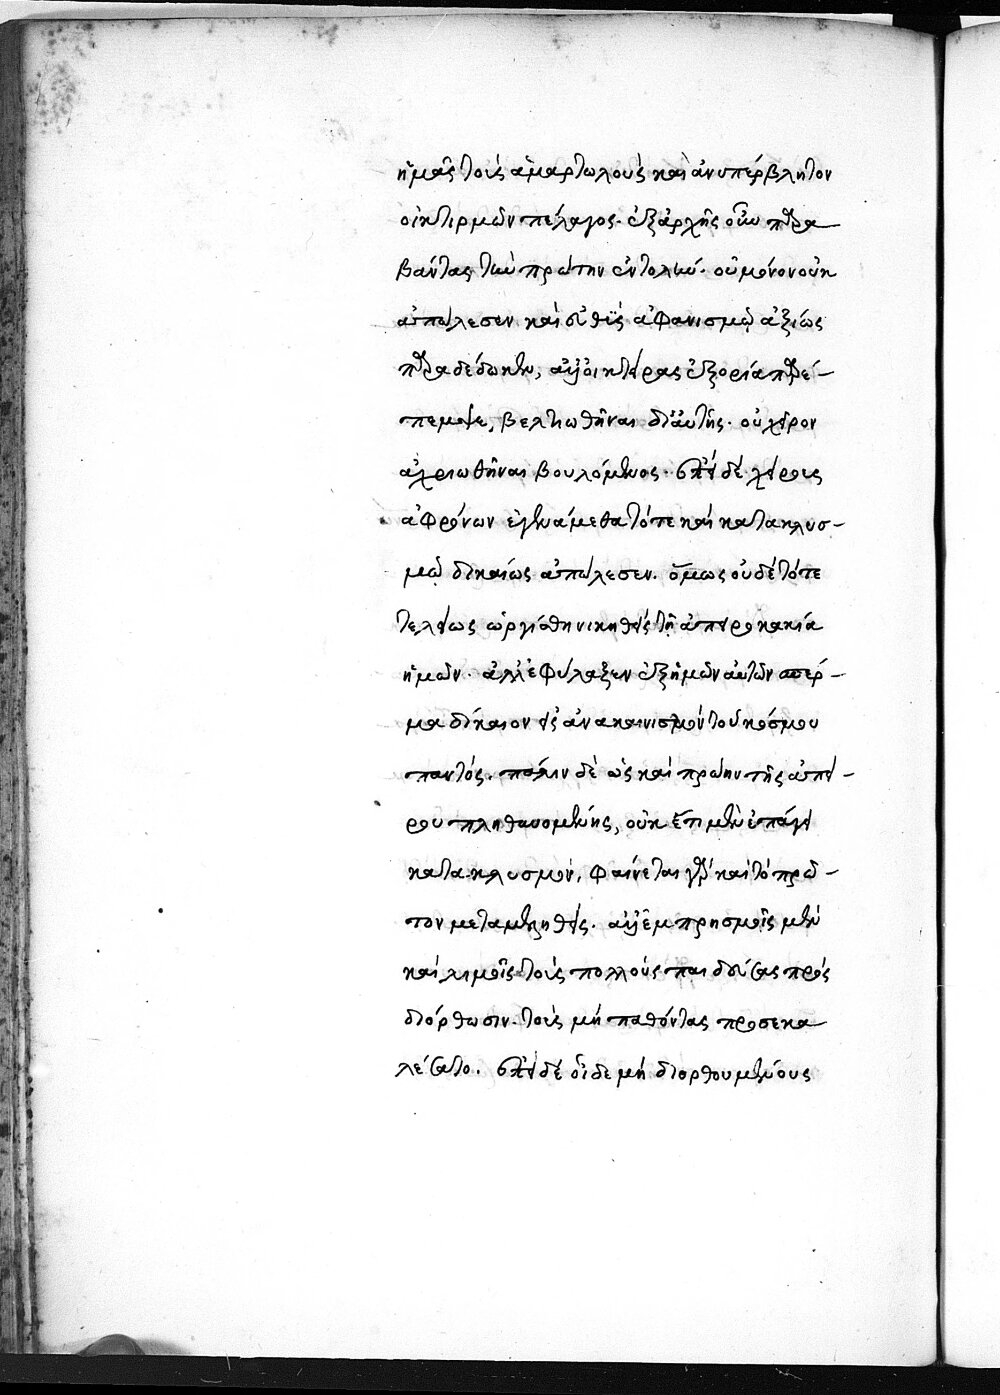 ἡμᾶς τοὺς ἁμαρτωλοὺς καὶ ἀνυπέρβλητον
οἰκτιρμῶν πέλαγος. ἐξαρχῆς οὖν παρα
βάντας τὴν πρώτην ἐντολήν. οὐ μόνον οὐκ
ἀπώλεσεν καὶ εὐθὺς ἀφανισμῷ ἀξίως
παραδέδωκεν, ἀλλ' οἰκτείρας ἐξορία παρέ-
πεμψε, βελτιωθῆναι δι' αὐτῆς. οὐ χεῖρον
ἀχρειωθῆναι βουλόμενος. ἐπεὶ δὲ χείρους
ἀφρόνων ἐγενάμεθα τότε καὶ κατακλυσ-
μῷ δικαίως ἀπώλεσεν. ὅμως οὐδέ τότε
τελείως ὠργίσθη νικηθεὶς τῇ ἀπειροκακία
ἡμῶν. ἀλλ' ἐφύλαξεν ἐξ ἡμῶν αὐτῶν σπέρ-
μα δίκαιον εἰς ἀνακαινισμὸν τοῦ κόσμου
παντός. πάλιν δὲ ὡς καὶ πρώην τῆς ἀπεί-
ρου πληθυνομένης, οὐκ ἔτι μὲν ἐπάγει
κατακλυσμόν, φαίνεται γὰρ καὶ τὸ πρῶ-
τον μεταμεληθείς. ἀλλ' ἐμπρησμοῖς μὲν
καὶ λιμοῖς τοὺς πολλοὺς παιδεύσας πρὸς
διόρθωσιν. τοὺς μὴ παθόντας προσεκα
λέσατο. ἐπεὶ δὲ οἶδε μὴ διορθουμένους